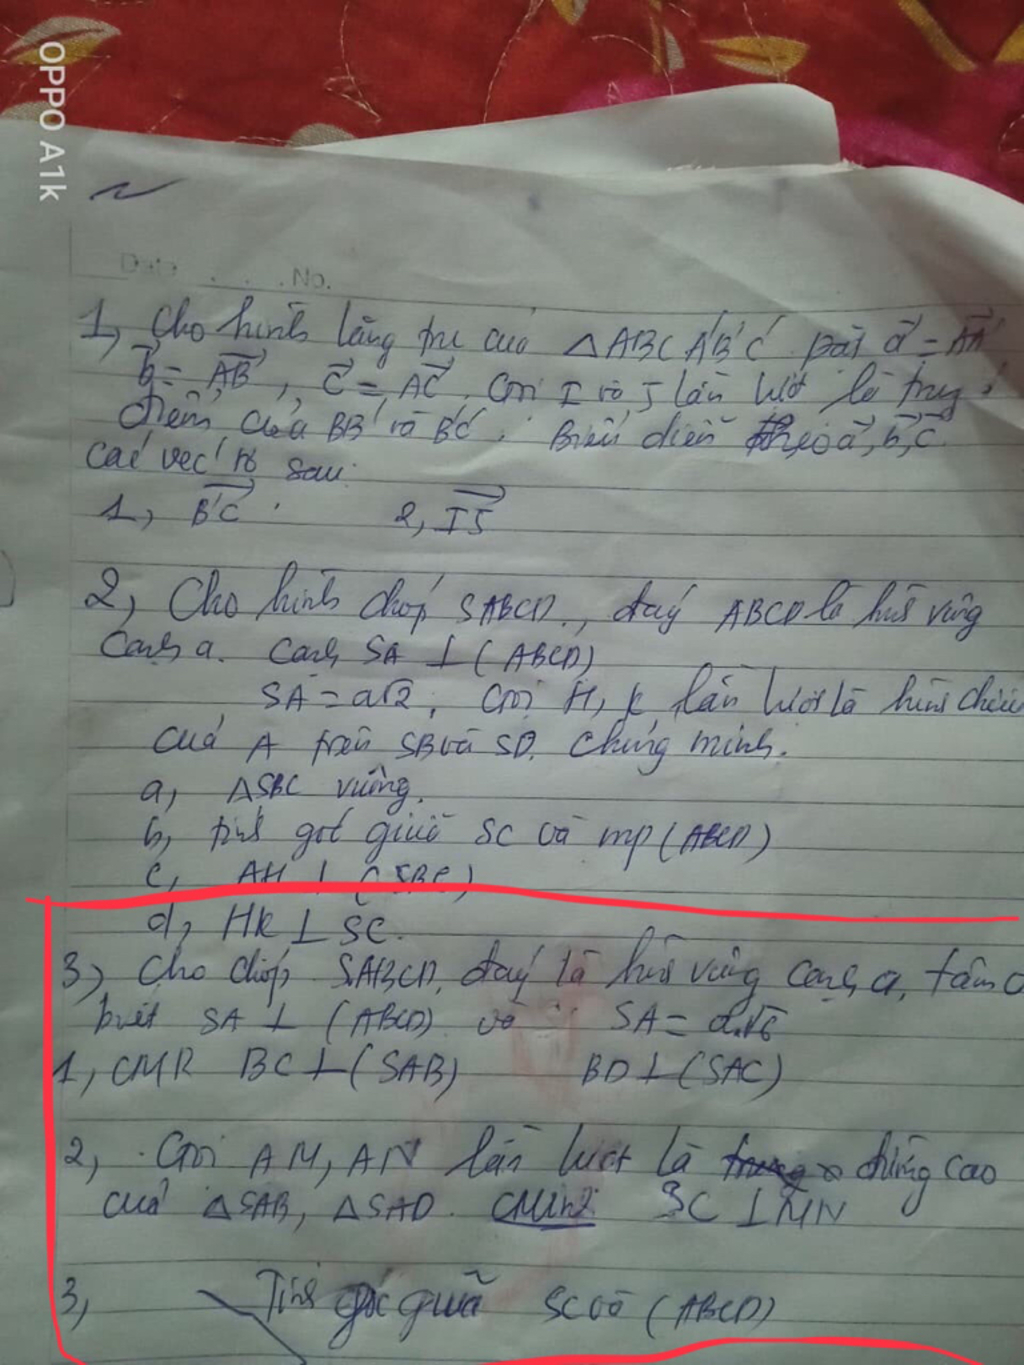 OPPO A1k
No.
1, Cho hình lăng trụ cuả △ABC A'B'C' Đặt a⃗ = AA'⃗
b⃗ = AB⃗, c⃗ = AC⃗. Gọi I và J lần lượt là trung
điểm của BB' và B'C'. Biểu diễn theo a⃗, b⃗, c⃗
các véc tơ sau:
1, B'C⃗ 2, IJ⃗
2, Cho hình chóp SABCD., đáy ABCD là hình vuông
cạnh a. Cạnh SA ⊥ (ABCD)
SA = a√2, Gọi H, K lần lượt là hình chiếu
cuả A trên SB và SD. Chứng minh.
a, △SBC vuông.
b, tính góc giữa SC và mp (ABCD)
c, AH ⊥ (SBC)
d, HK ⊥ SC.
3, Cho chóp SABCD, đáy là hình vuông cạnh a, tâm O
biết SA ⊥ (ABCD) và SA = a√6
1, CMR BC ⊥ (SAB) BD ⊥ (SAC)
2, Gọi AM, AN lần lượt là đường cao
cuả △SAB, △SAD. CMinh SC ⊥ MN
3, Tính góc giữa SC và (ABCD)